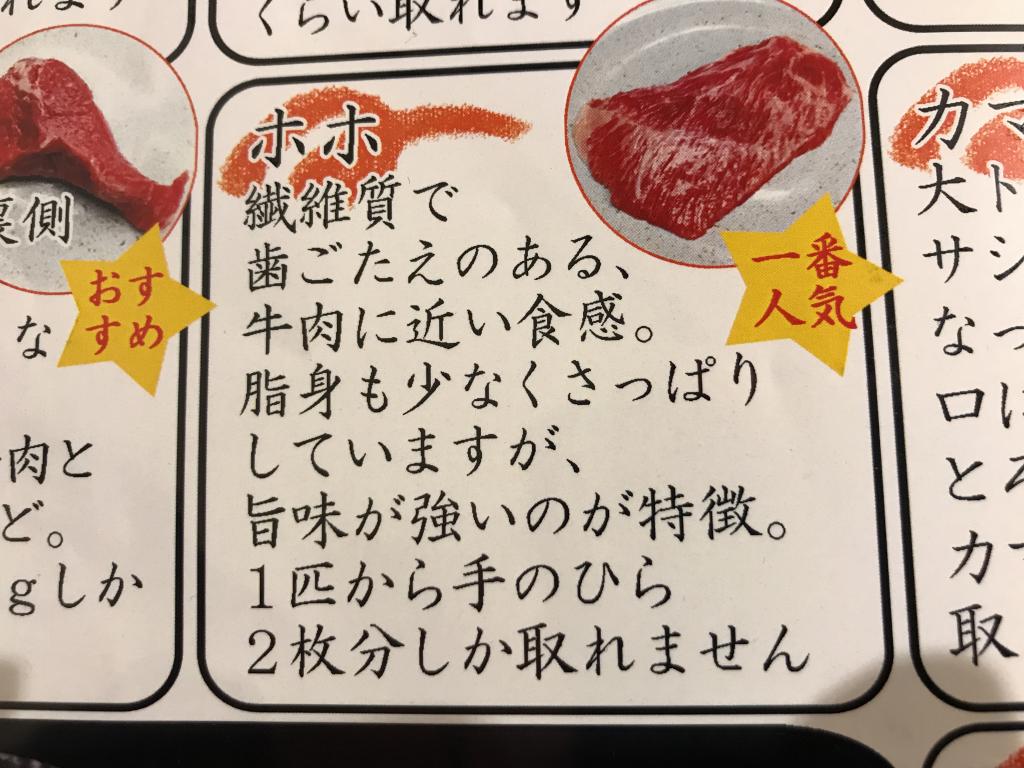 くらい取れます
ホホ
繊維質で
歯ごたえのある、
牛肉に近い食感。
脂身も少なくさっぱり
していますが、
旨味が強いのが特徴。
1匹から手のひら
2枚分しか取れません
一番
人気
裏側
おす
すめ
な
肉と
ど。
gしか
カマ
大ト
サシ
なっ
口に
とろ
カマ
取